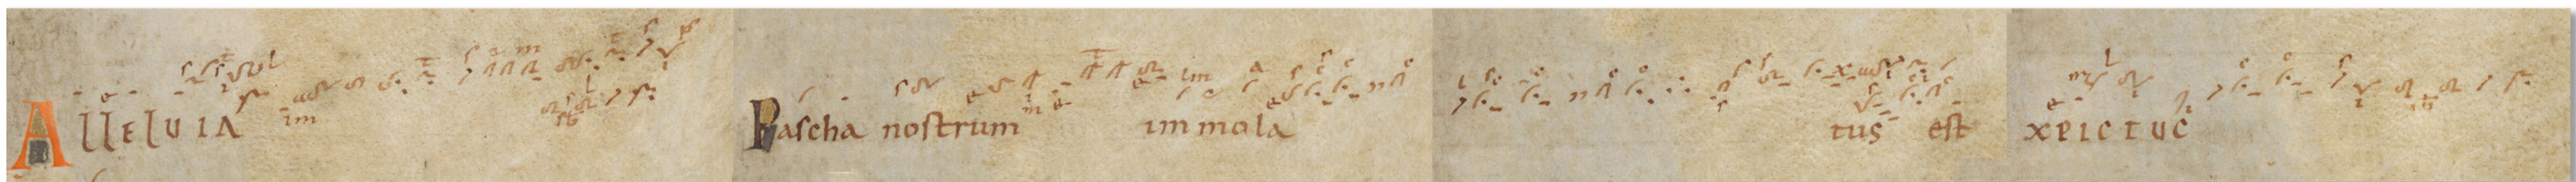 Alleluia Pascha nostrum immola tus est xpictuc